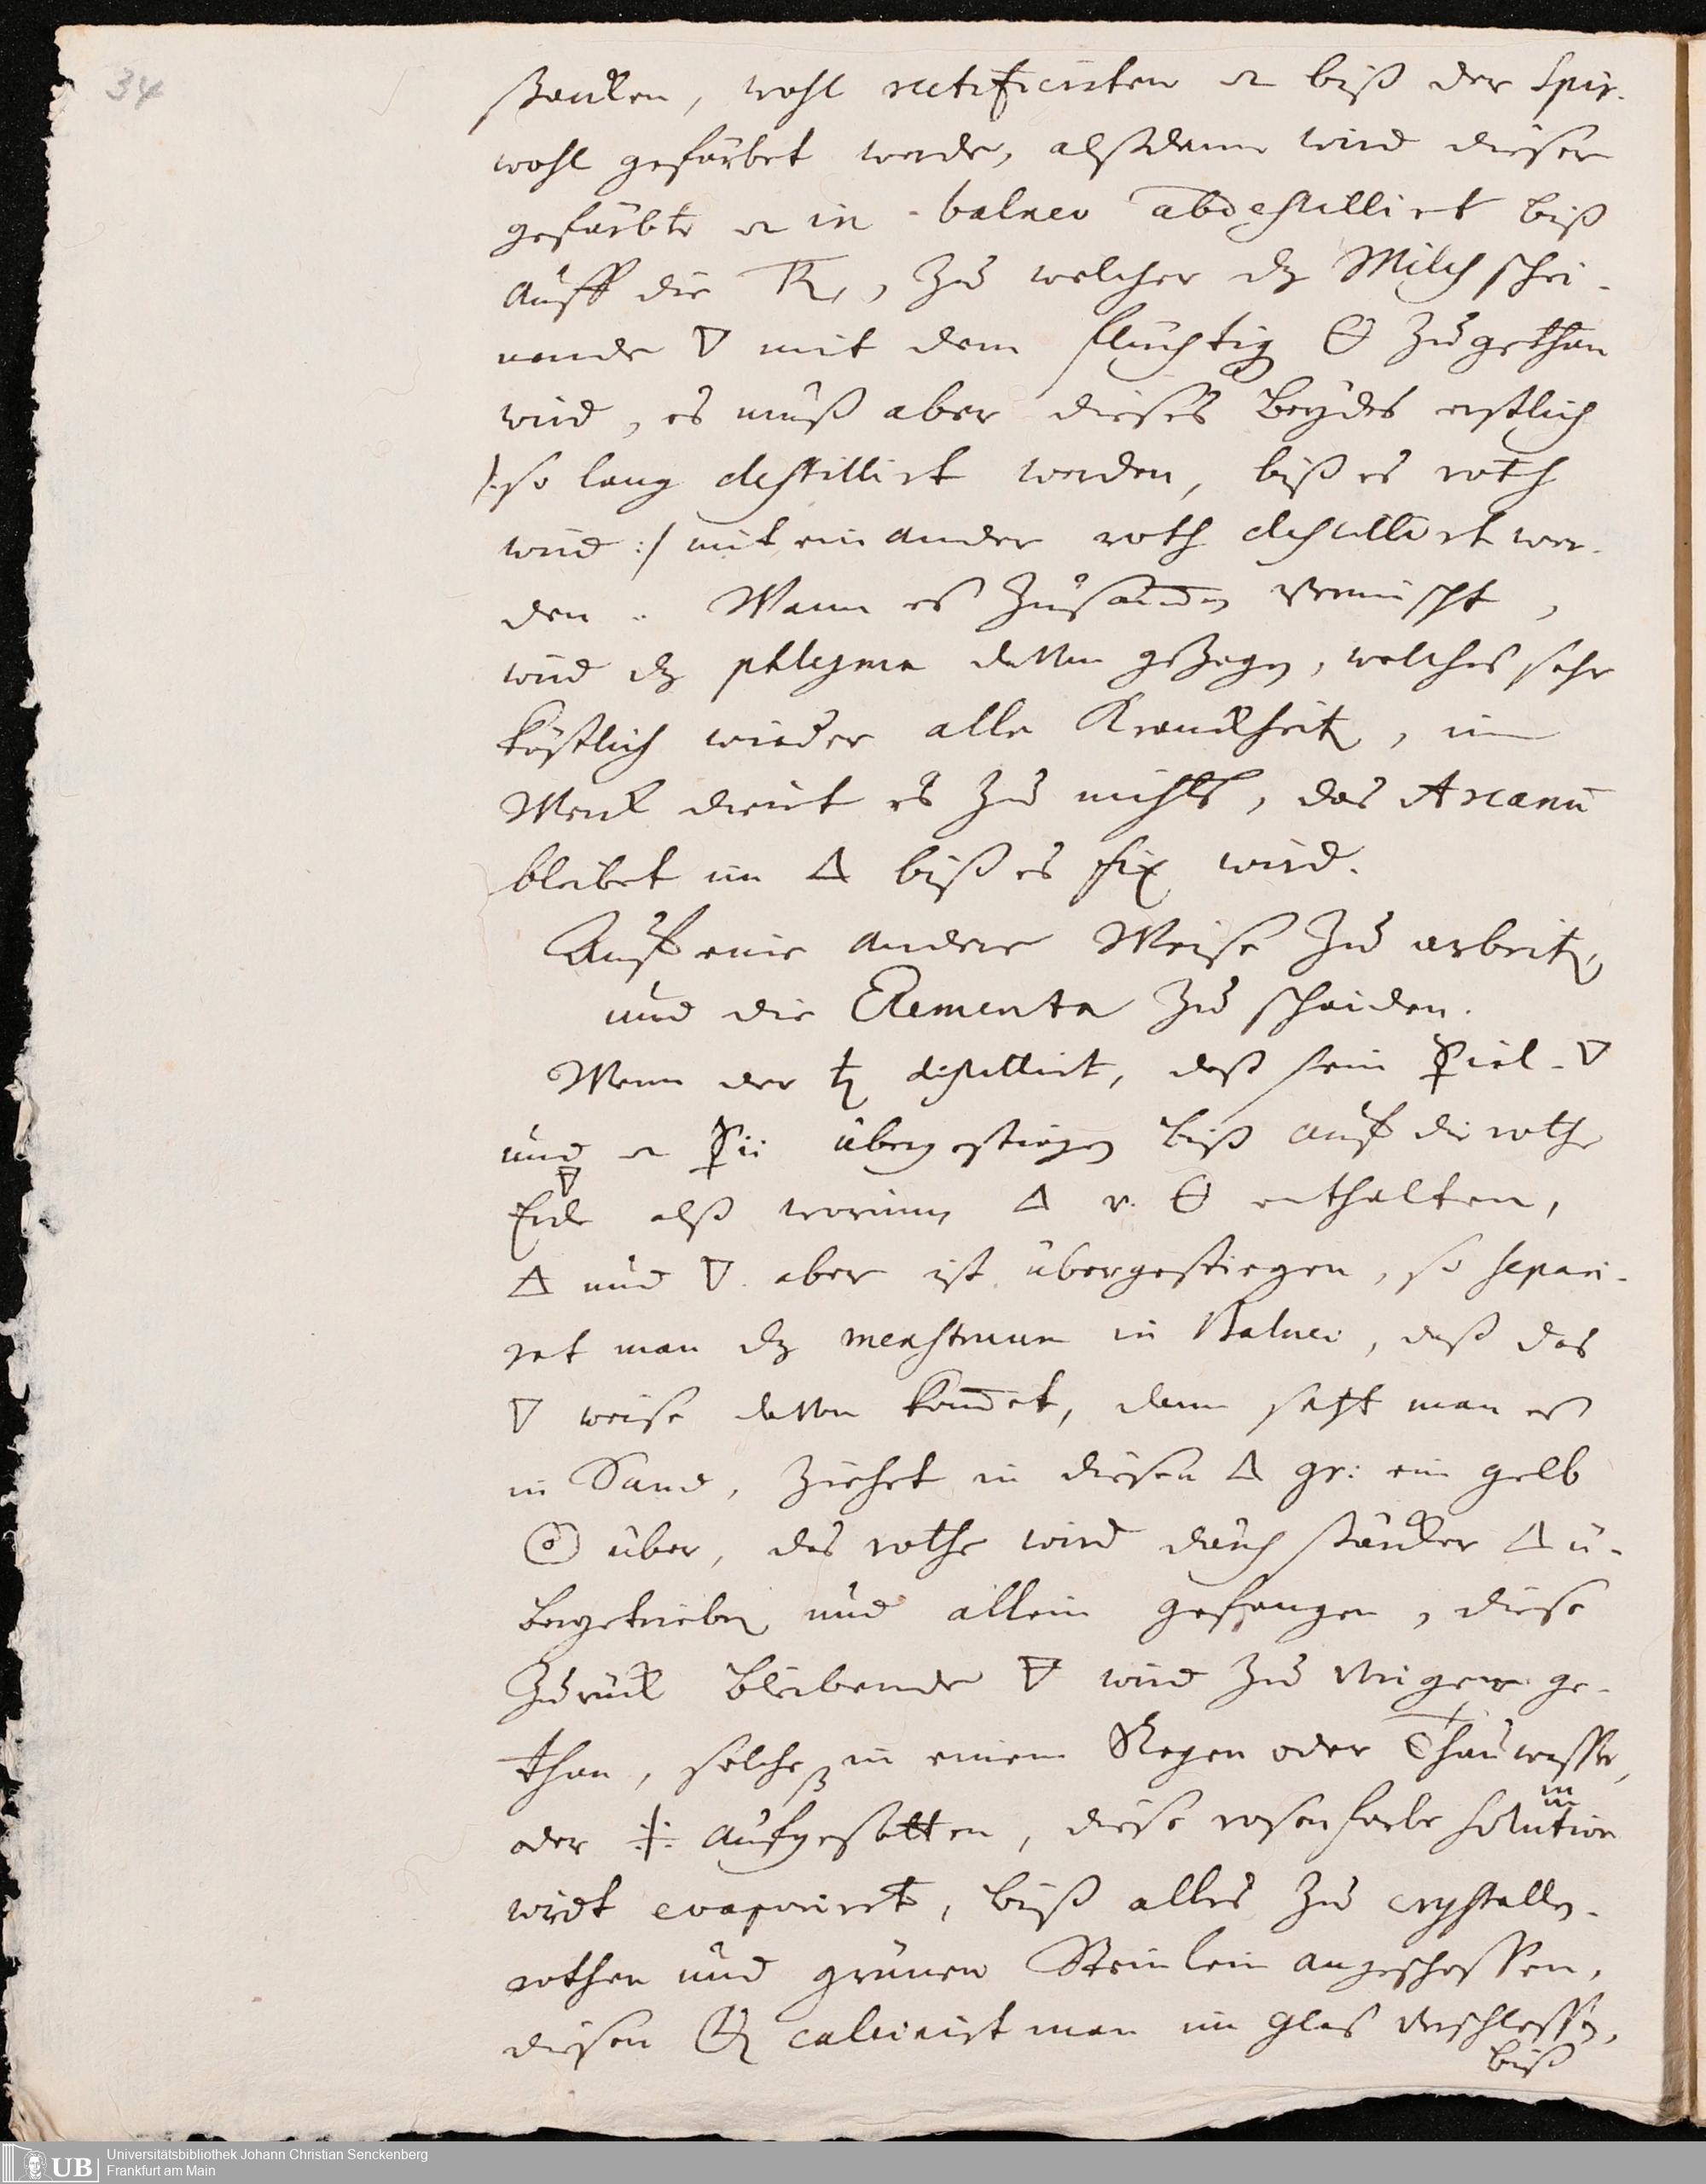 34
starken, wohl rectificirten biß der Spir.
wohl gefärbet werde, alßdann wird dieser
gefärbte in balneo abdestillirt biß
auff die , zu welcher dz Milch schei-
nende 🜄 mit dem fluchtig 🜔 zu gethan
wird, es muß aber dieses beydes erstlich
/: so lang destillirt werden, biß es roth
wird :/ mit einander roth destillirt wer-
den. Wann es zusamen vermischt,
wird dz phlegma davon gezogen, welches sehr
köstlich wieder alle Kranckheiten, im
Werck dient es zu nichts, das Arcanū
bleibet im 🜂 biß es fix wird.
Auf eine andere Weise zu arbeiten,
und die Elementa zu scheiden.
Wenn der ♄ distillirt, daß sein 🜄
und übergestiegen biß auf die rothe
🜃
Erde alß worinnen 🜂 v. 🜔 enthalten,
🜁 und 🜄 aber ist übergestiegen, so separi-
ret man dz menstruum in Balnei, daß das
🜄 weise davon komet, dann setzt man es
in Sand, ziehet in diesen 🜂 gr: ein gelb
über, das rothe wird durch starcker 🜂 ü-
bergetrieben und allein gefangen, diese
zurück bleibende 🜃 wird zu ge-
than, solches in einem Regen oder Thauwasser,
oder aufgesotten, diese rosenfarbe solution
wirdt evaporirt, biß alles zu crystallen
rothen und grünen Steinlein angeschossen,
diesen calcinirt man im Glas verschlossen,
biß
Universitätsbibliothek Johann Christian Senckenberg
UB
Frankfurt am Main